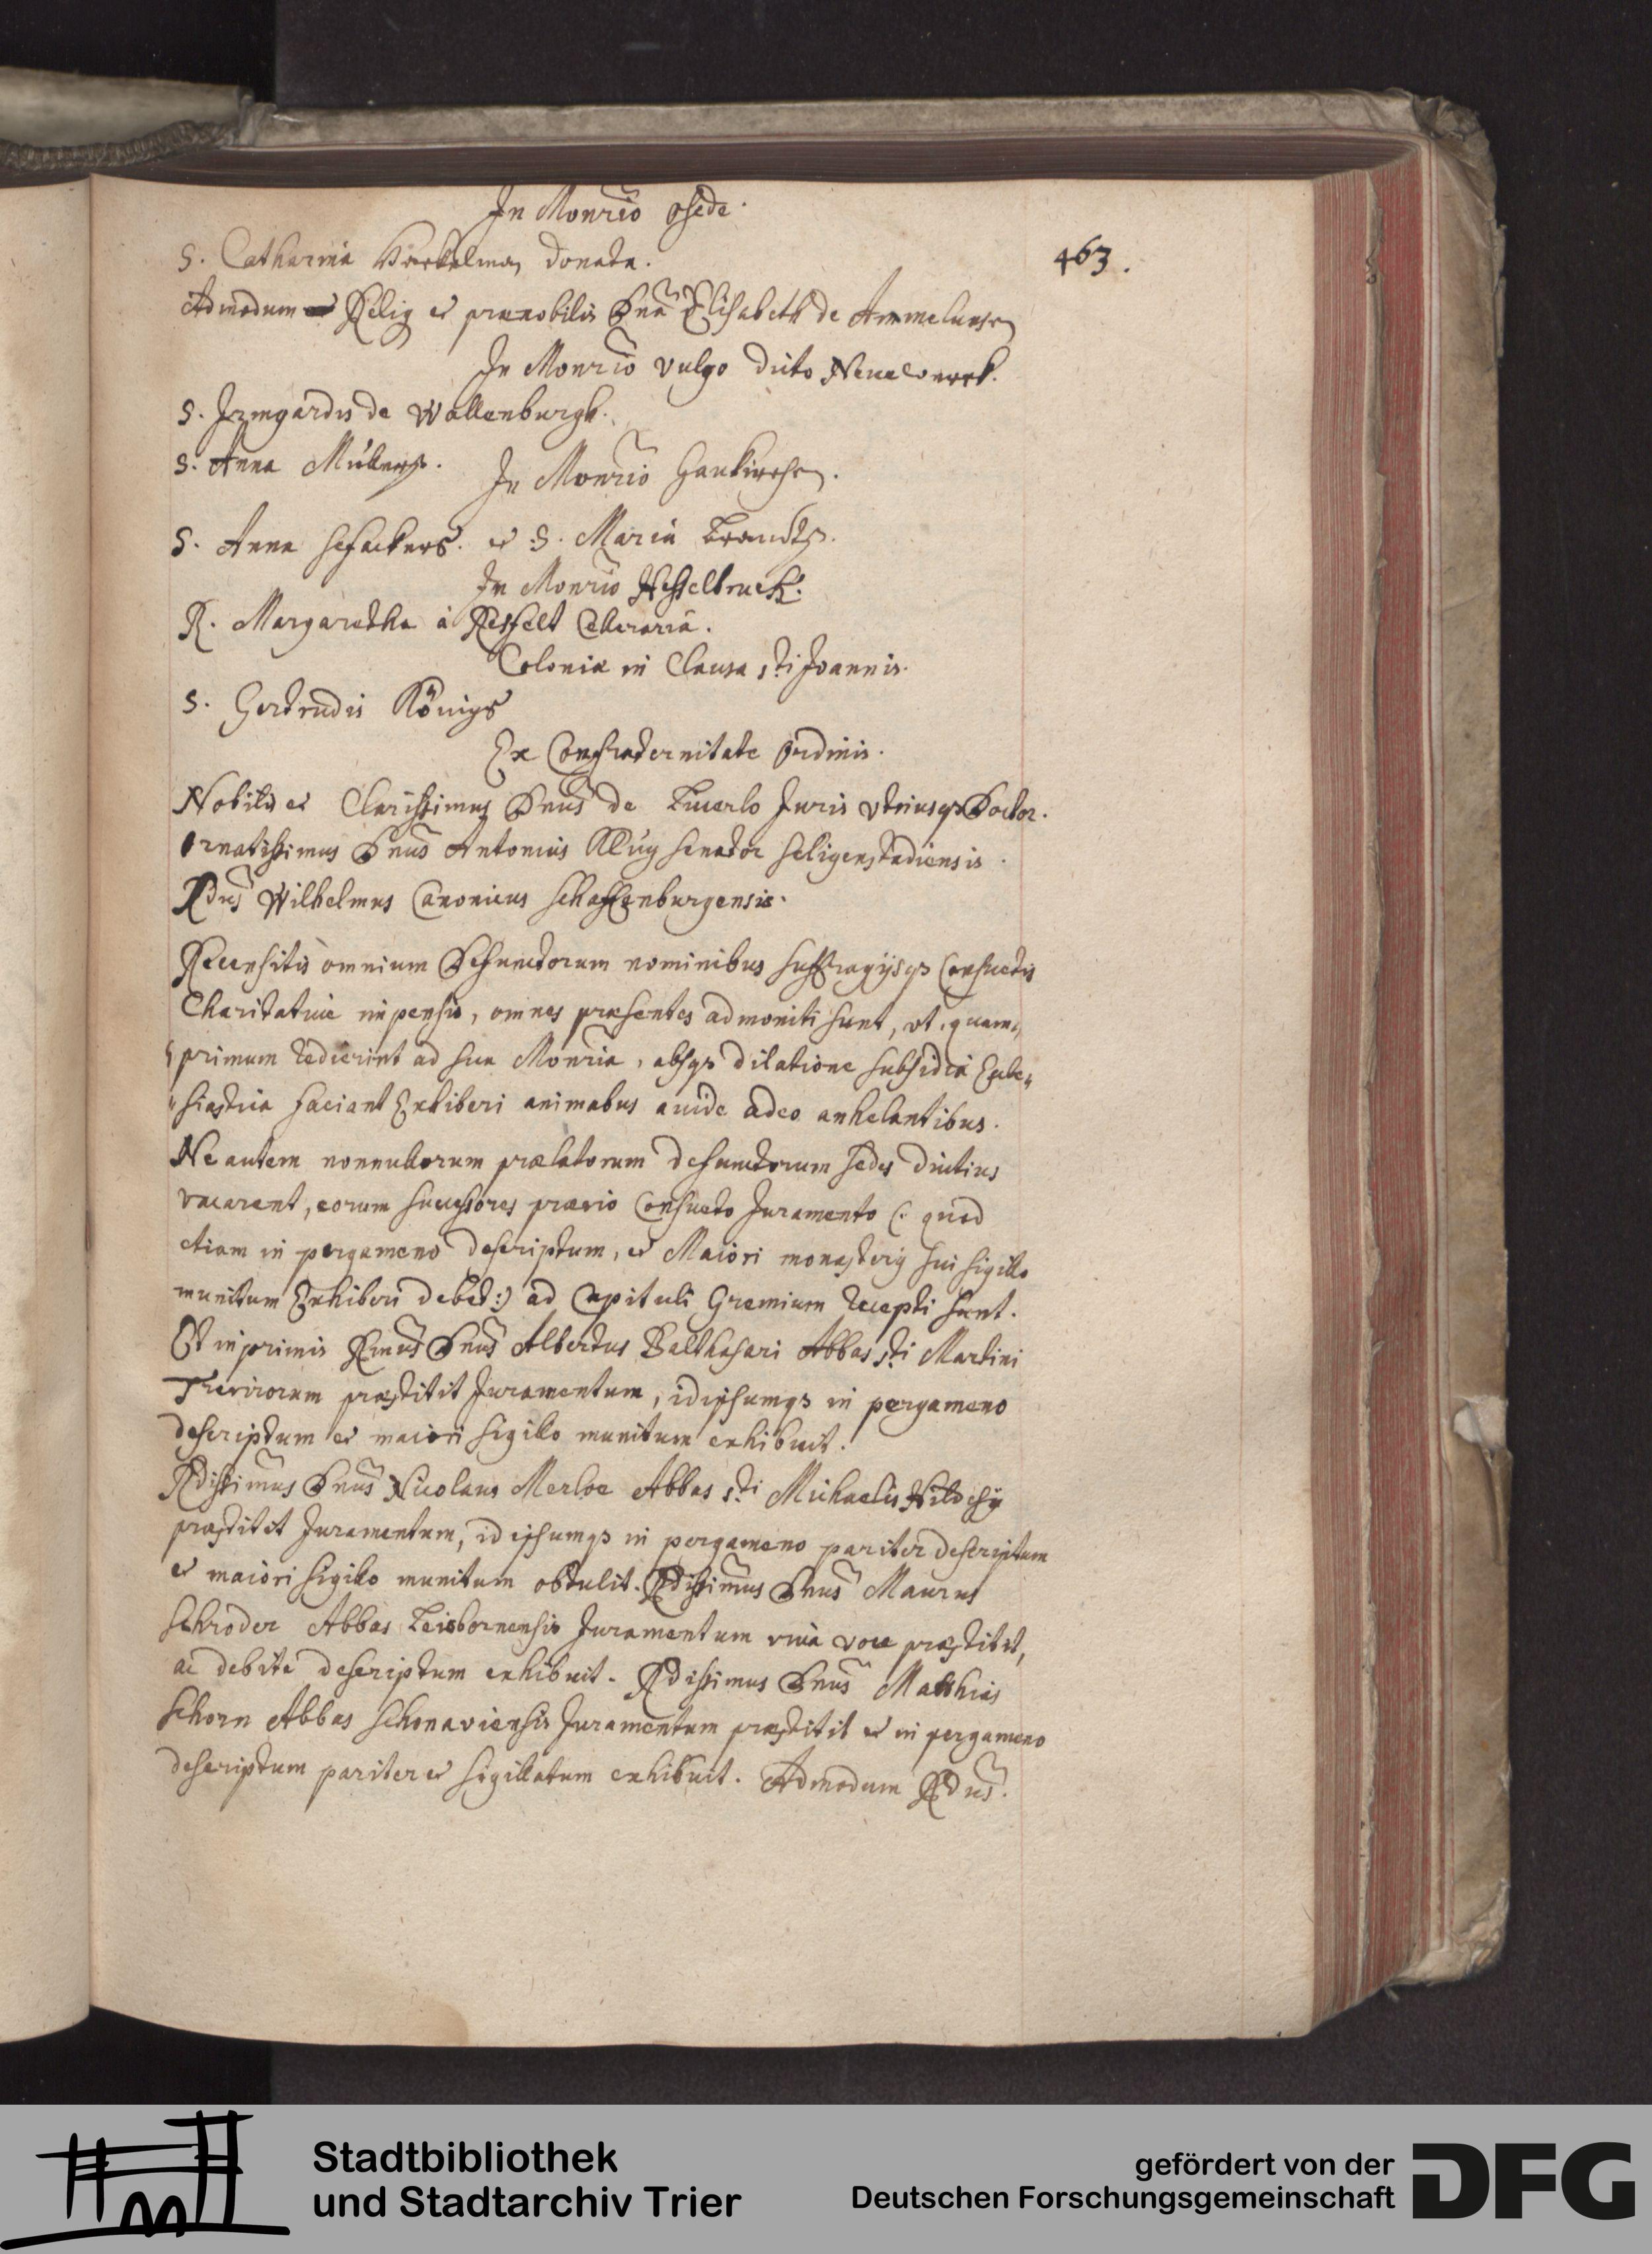 In Monrio Osede.
463.
S. Catharina donata.
Admodum Relig et prænobilis Dna Elisabeth de Ammelunxen
In Monrio vulgo dicto Neuewerk.
S. Irmgardis de Wallenburgh.
S. Anna Müllers.
In Monrio Gaukirchen.
S. Anna Schackers. et S. Maria Brandts.
In Monrio Hesselbruch.
R. Margaretha à Resfelt Celleraria.
Coloniæ in Clausa sti Joannis.
S. Gertrudis Königs
Ex Confraternitate Ordinis.
Nobilis et Clarissimus Dnus de Juris Vtriusqz Doctor.
Ornatissimus Dnus Antonius Klug Senator Seligenstadiensis.
Rdus Wilhelmus Canonicus Schaffenburgensis.
Recensitis omnium Defunctorum nominibus suffragijsqz Consuetis
Charitativè impensis, omnes præsentes admoniti sunt, ut, quam,,
primum redierint ad sua Monria, absqz dilatione subsidia Eccle,,
,,siastica faciant Exhiberi animabus auide adeo anhelantibus.
Ne autem nonnullorum prælatorum defunctorum sedes diutius
vacarent, eorum successores prævio Consueto Juramento (: quod
etiam in pergameno descriptum, et Maiori monasterij sui sigillo
munitum Exhiberi debet:) ad Capituli Gremium recepti sunt.
Et inprimis Rmus Dnus Albertus Balthasari Abbas sti Martini
Trevirorum præstitit Juramentum, idipsumqz in pergameno
descriptum et maiori sigillo munitum exhibuit.
Rdissimus Dnus Nicolaus Merloe Abbas sti Michaelis Hildesij
præstitit Juramentum, id ipsumqz in pergameno pariter descriptum
et maiori sigillo munitum obtulit. Rdissimus Dnus Maurus
Schroder Abbas Leisbornensis Juramentum viva voce præstitit,
ac debite descriptum exhibuit. Rdissimus Dnus Matthias
Schorn Abbas Schonaviensis Juramentum præstitit et in pergameno
descriptum pariter et sigillatum exhibuit. Admodum Rdus.
Stadtbibliothek
und Stadtarchiv Trier
gefördert von der
Deutschen Forschungsgemeinschaft
DFG